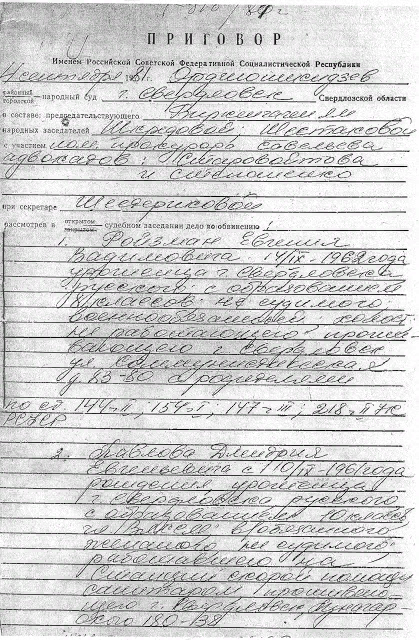 1-510/81 г
ПРИГОВОР
Именем Российской Советской Федеративной Социалистической Республики
4 сентября 1981 г. Орджоникидзев
районный городской народный суд г. Свердловск Свердловской области
в составе: председательствующего
народных заседателей Шкридовой, Шестаковой
с участием пом. прокурора Савельева
адвокатов: Старовойтова
и Симоненко
при секретаре
рассмотрев в открытом закрытом судебном заседании дело по обвинению
1. Ройзман Евгения
Вадимовича 14/IX-1962 года
уроженца г. Свердловска
русского с образованием
8 классов не судимого
военнообязанный холост
не работающего прожи-
вающего г. Свердловск
ул Коммунистическая
д. 83-80 с родителями
по ст 144 ч II, 154 ч I, 147 ч III, 218 ч II УК
РСФСР
2. Павлова Дмитрия
Евгеньевича с 110/IX-1961 года
рождения уроженца
г. Свердловска русского
с образованием 10 классов
чл ВЛКСМ в/обязанного
женатого не судимого
работавшего на
Станции скорой помощи
санитаром проживаю-
щего г. Свердловск
180-138